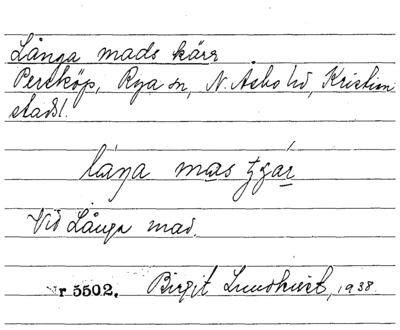 Långa mads kärr
Perstköp, Rya sn, N. Åsbo hd, Kristian
stads l.
Vid Långa mad.
Nr 5502. Birgit Lundkvist, 1938